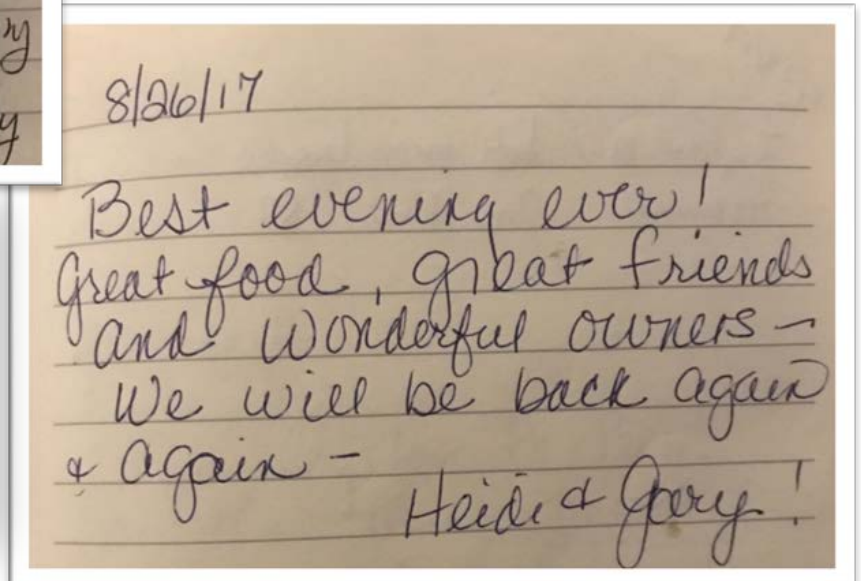 8/26/17
Best evening ever!
Great food, great friends
and wonderful owners –
We will be back again
& again –
Heidi &